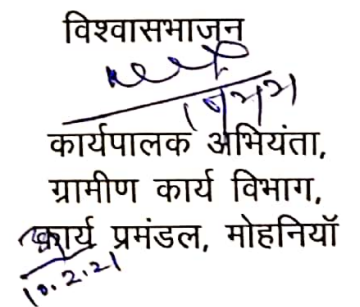 विश्वासभाजन
कार्यपालक अभियंता,
ग्रामीण कार्य विभाग,
कार्य प्रमंडल, मोहनियॉ
10.2.21